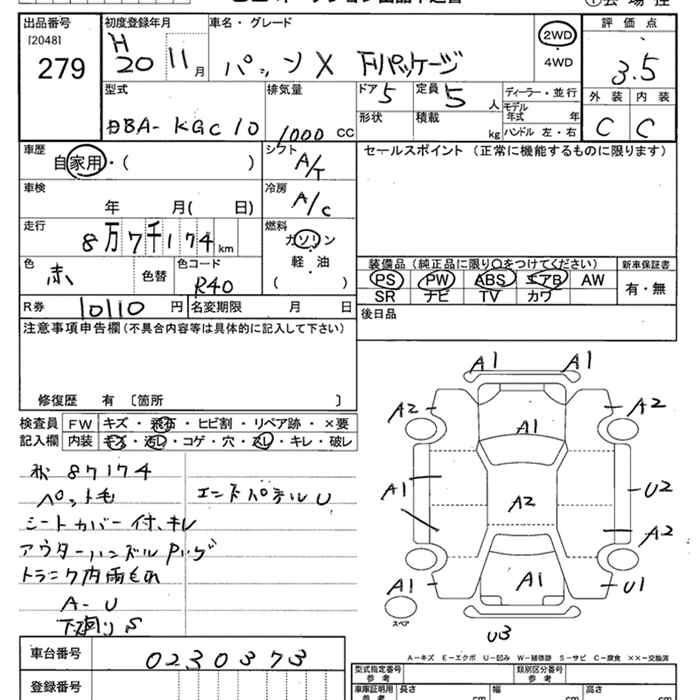 出品番号 初度登録年月 車名・グレード 評価点
[2048] H 2WD
279 20 11月 パッソ X Fパッケージ ・ 4WD 3.5
型式 排気量 ドア 5 定員 5人 ディーラー・並行 外装 内装
モデル年式 年
DBA- KGC10 1000 CC 形状 積載 kg ハンドル 左・右 C C
車歴 自家用・( ) シフト A/T セールスポイント (正常に機能するものに限ります)
車検 年 月( 日) 冷房 A/C
走行 8万7千174 km 燃料 ガソリン
色 赤 色替 色コード R40 軽・油
( )
装備品(純正品に限り○をつけてください) 新車保証書
PS PW ABS エアB AW 有・無
SR ナビ TV カワ
R券 10110 円 名変期限 月 日 後日品
注意事項申告欄(不具合内容等は具体的に記入して下さい)
修復歴 有〔箇所 〕
検査員 FW キズ・飛石・ヒビ割・リペア跡・×要
記入欄 内装 キズ・汚レ・コゲ・穴・スレ・キレ・破レ
87174
ペット毛 エンドパネル U
シートカバー付、キレ
アウターハンドル
トランク内雨もれ
A-U
下廻り S
A1 A1
A2 A1 A2
A1 A2 U2
A2
A1 A1 U1
スペア
U3
A-キズ E-エクボ U-凹み W-補修跡 S-サビ C-腐食 ××-交換済
車台番号 0230373
登録番号
型式指定番号 参考 類別区分番号 参考
車庫証明用 参考 長さ cm 幅 cm 高さ cm